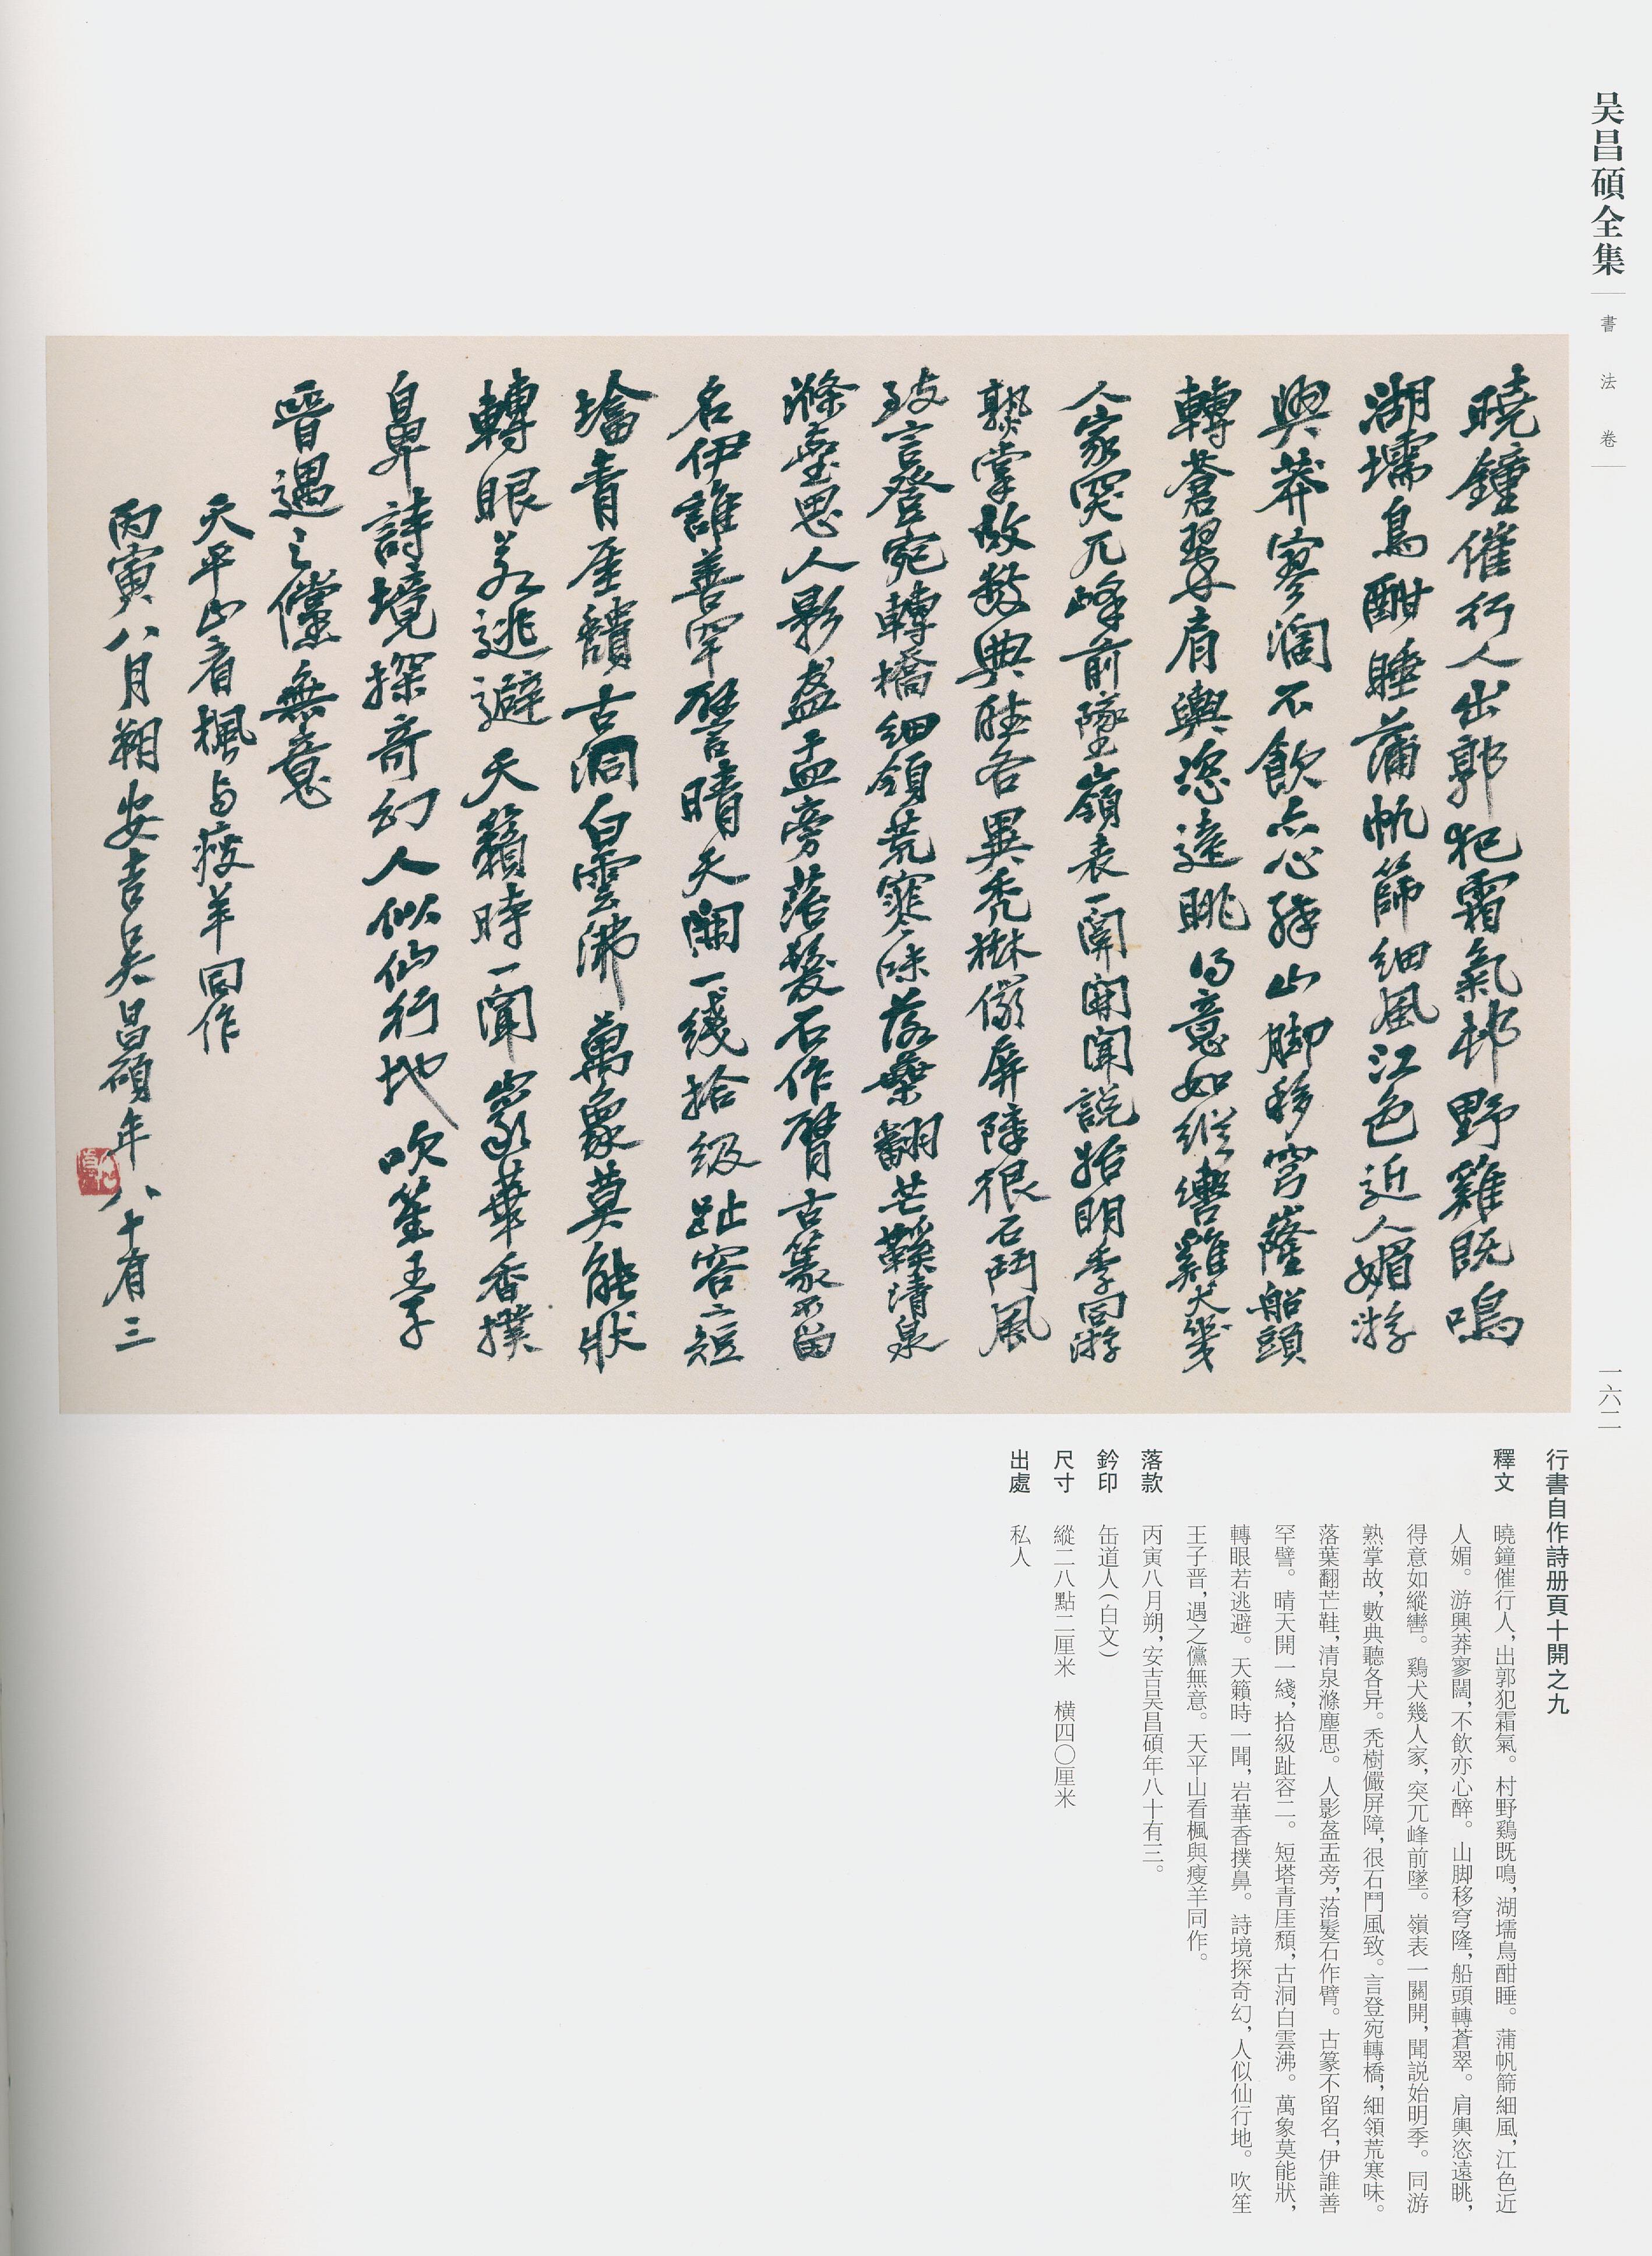 吴昌碩全集
書法卷
一六二
曉鐘催行人出郭犯霜氣邨野雞既鳴
湖壖鳥酣睡蒲帆篩細風江色近人媚游
興莽寥闊不飲亦心醉山脚移穹窿船頭
轉蒼翠肩輿恣遠眺得意如縱轡雞犬幾
人家突兀峰前墜嶺表一闢開聞説始明季同游
熟掌故數典聽各異禿樹儼屏障很石鬥風
致言登宛轉橋細領荒寒味落葉翻芒鞵清泉
滌塵思人影盎盂旁落髮石作臂古篆不留
名伊誰善罕譬晴天開一綫拾級趾容二短
墖青厓頹古洞白雲沸萬象莫能狀
轉眼若逃避天籟時一聞巖華香撲
鼻詩境探奇幻人似仙行地吹笙王子
晉遇之儻無意
天平山看楓与瘦羊同作
丙寅八月朔安吉吴昌碩年八十有三
行書自作詩册頁十開之九
釋文　曉鐘催行人，出郭犯霜氣。村野鷄既鳴，湖壖鳥酣睡。蒲帆篩細風，江色近
人媚。游興莽寥闊，不飲亦心醉。山脚移穹隆，船頭轉蒼翠。肩輿恣遠眺，
得意如縱轡。鷄犬幾人家，突兀峰前墜。嶺表一關開，聞説始明季。同游
熟掌故，數典聽各异。禿樹儼屏障，很石鬥風致。言登宛轉橋，細領荒寒味。
落葉翻芒鞋，清泉滌塵思。人影盎盂旁，菭髮石作臂。古篆不留名，伊誰善
罕譬。晴天開一綫，拾級趾容二。短塔青厓頹，古洞白雲沸。萬象莫能狀，
轉眼若逃避。天籟時一聞，岩華香撲鼻。詩境探奇幻，人似仙行地。吹笙
王子晋，遇之儻無意。天平山看楓與瘦羊同作。
落款　丙寅八月朔，安吉吴昌碩年八十有三。
鈐印　缶道人（白文）
尺寸　縱二八點二厘米　横四〇厘米
出處　私人